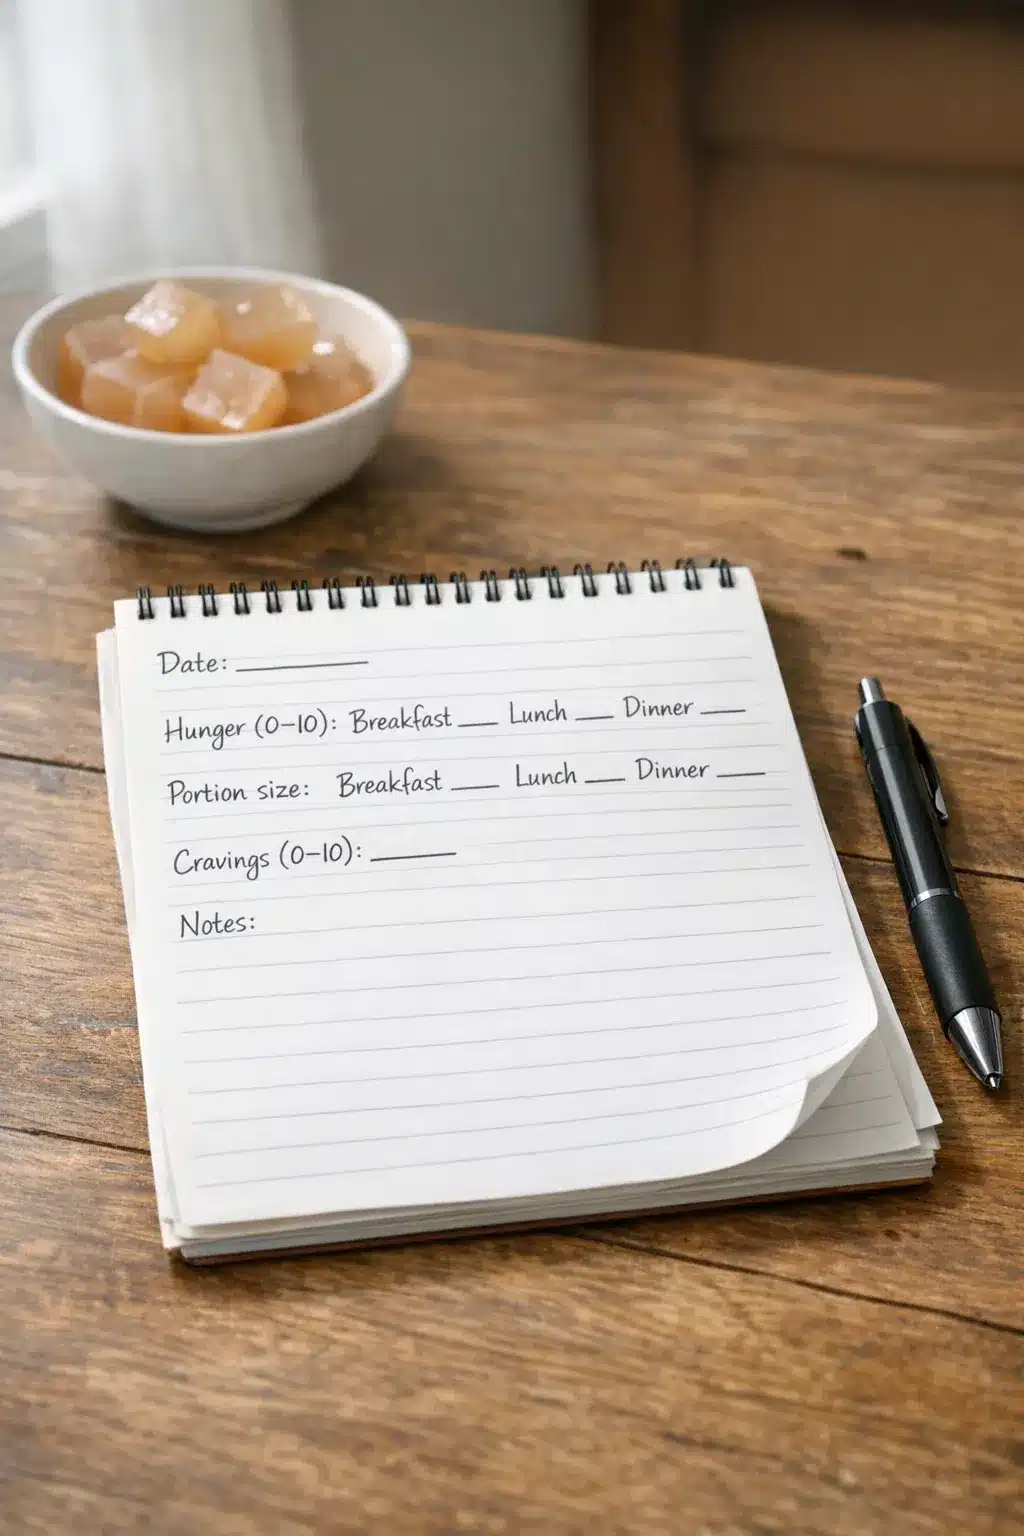 Date: ________
Hunger (0–10): Breakfast ___ Lunch ___ Dinner ___
Portion size: Breakfast ___ Lunch ___ Dinner ___
Cravings (0–10): ______
Notes: